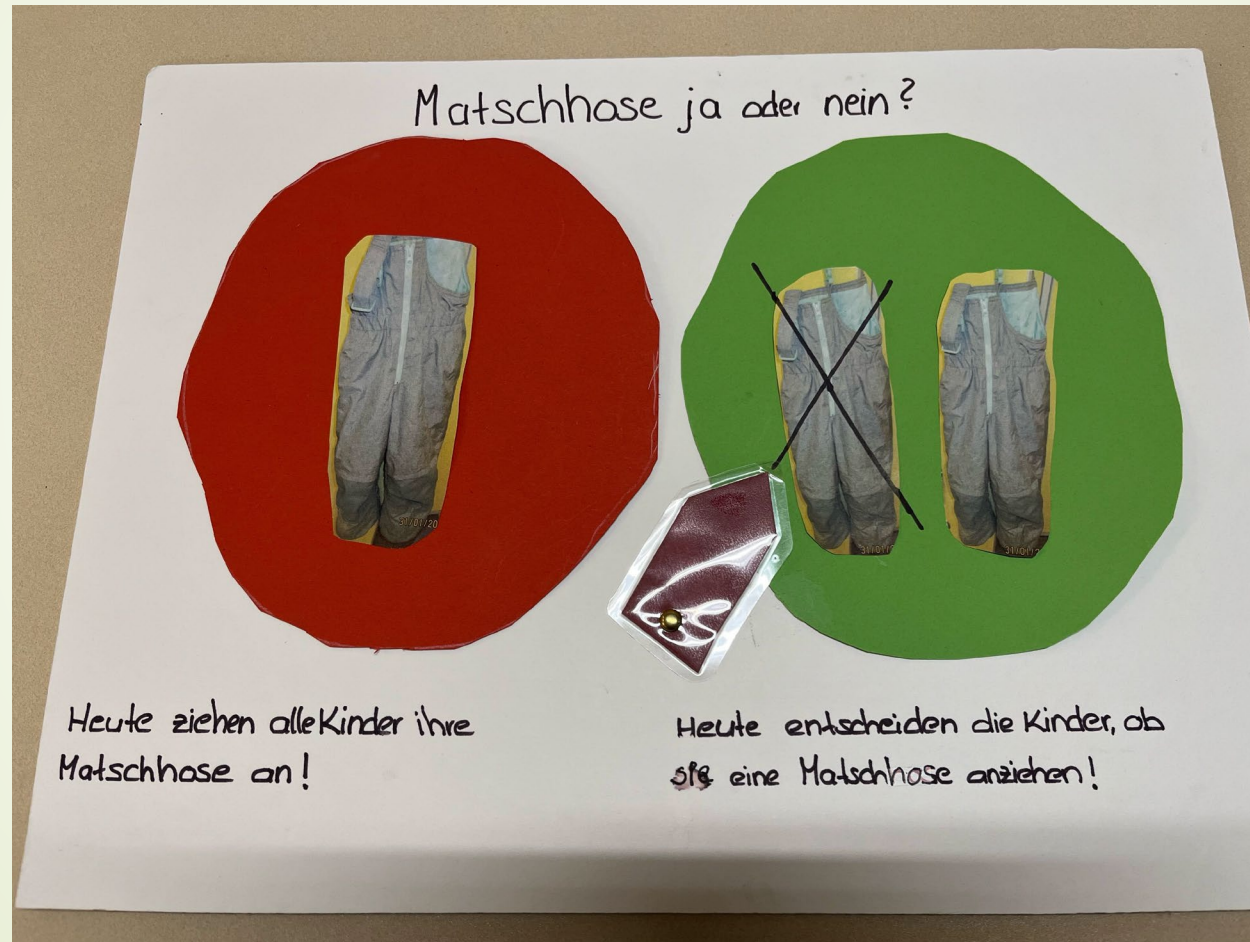 Matschhose ja oder nein?
31/01/20
31/01/?
31/01/?
Heute ziehen alle Kinder ihre
Matschhose an!
Heute entscheiden die Kinder, ob
sie eine Matschhose anziehen!